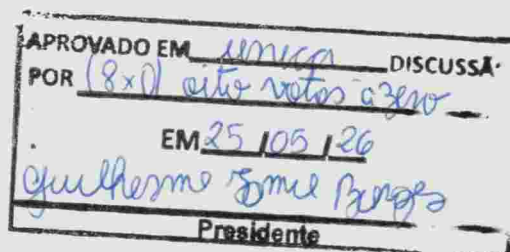 APROVADO EM única DISCUSSÃ
POR (8x0) oito votos a zero
EM 25 / 05 / 26
Guilherme
Presidente